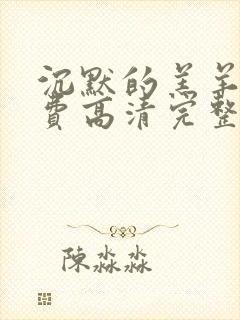 沉默的羔羊
費高清完整
陳淼淼